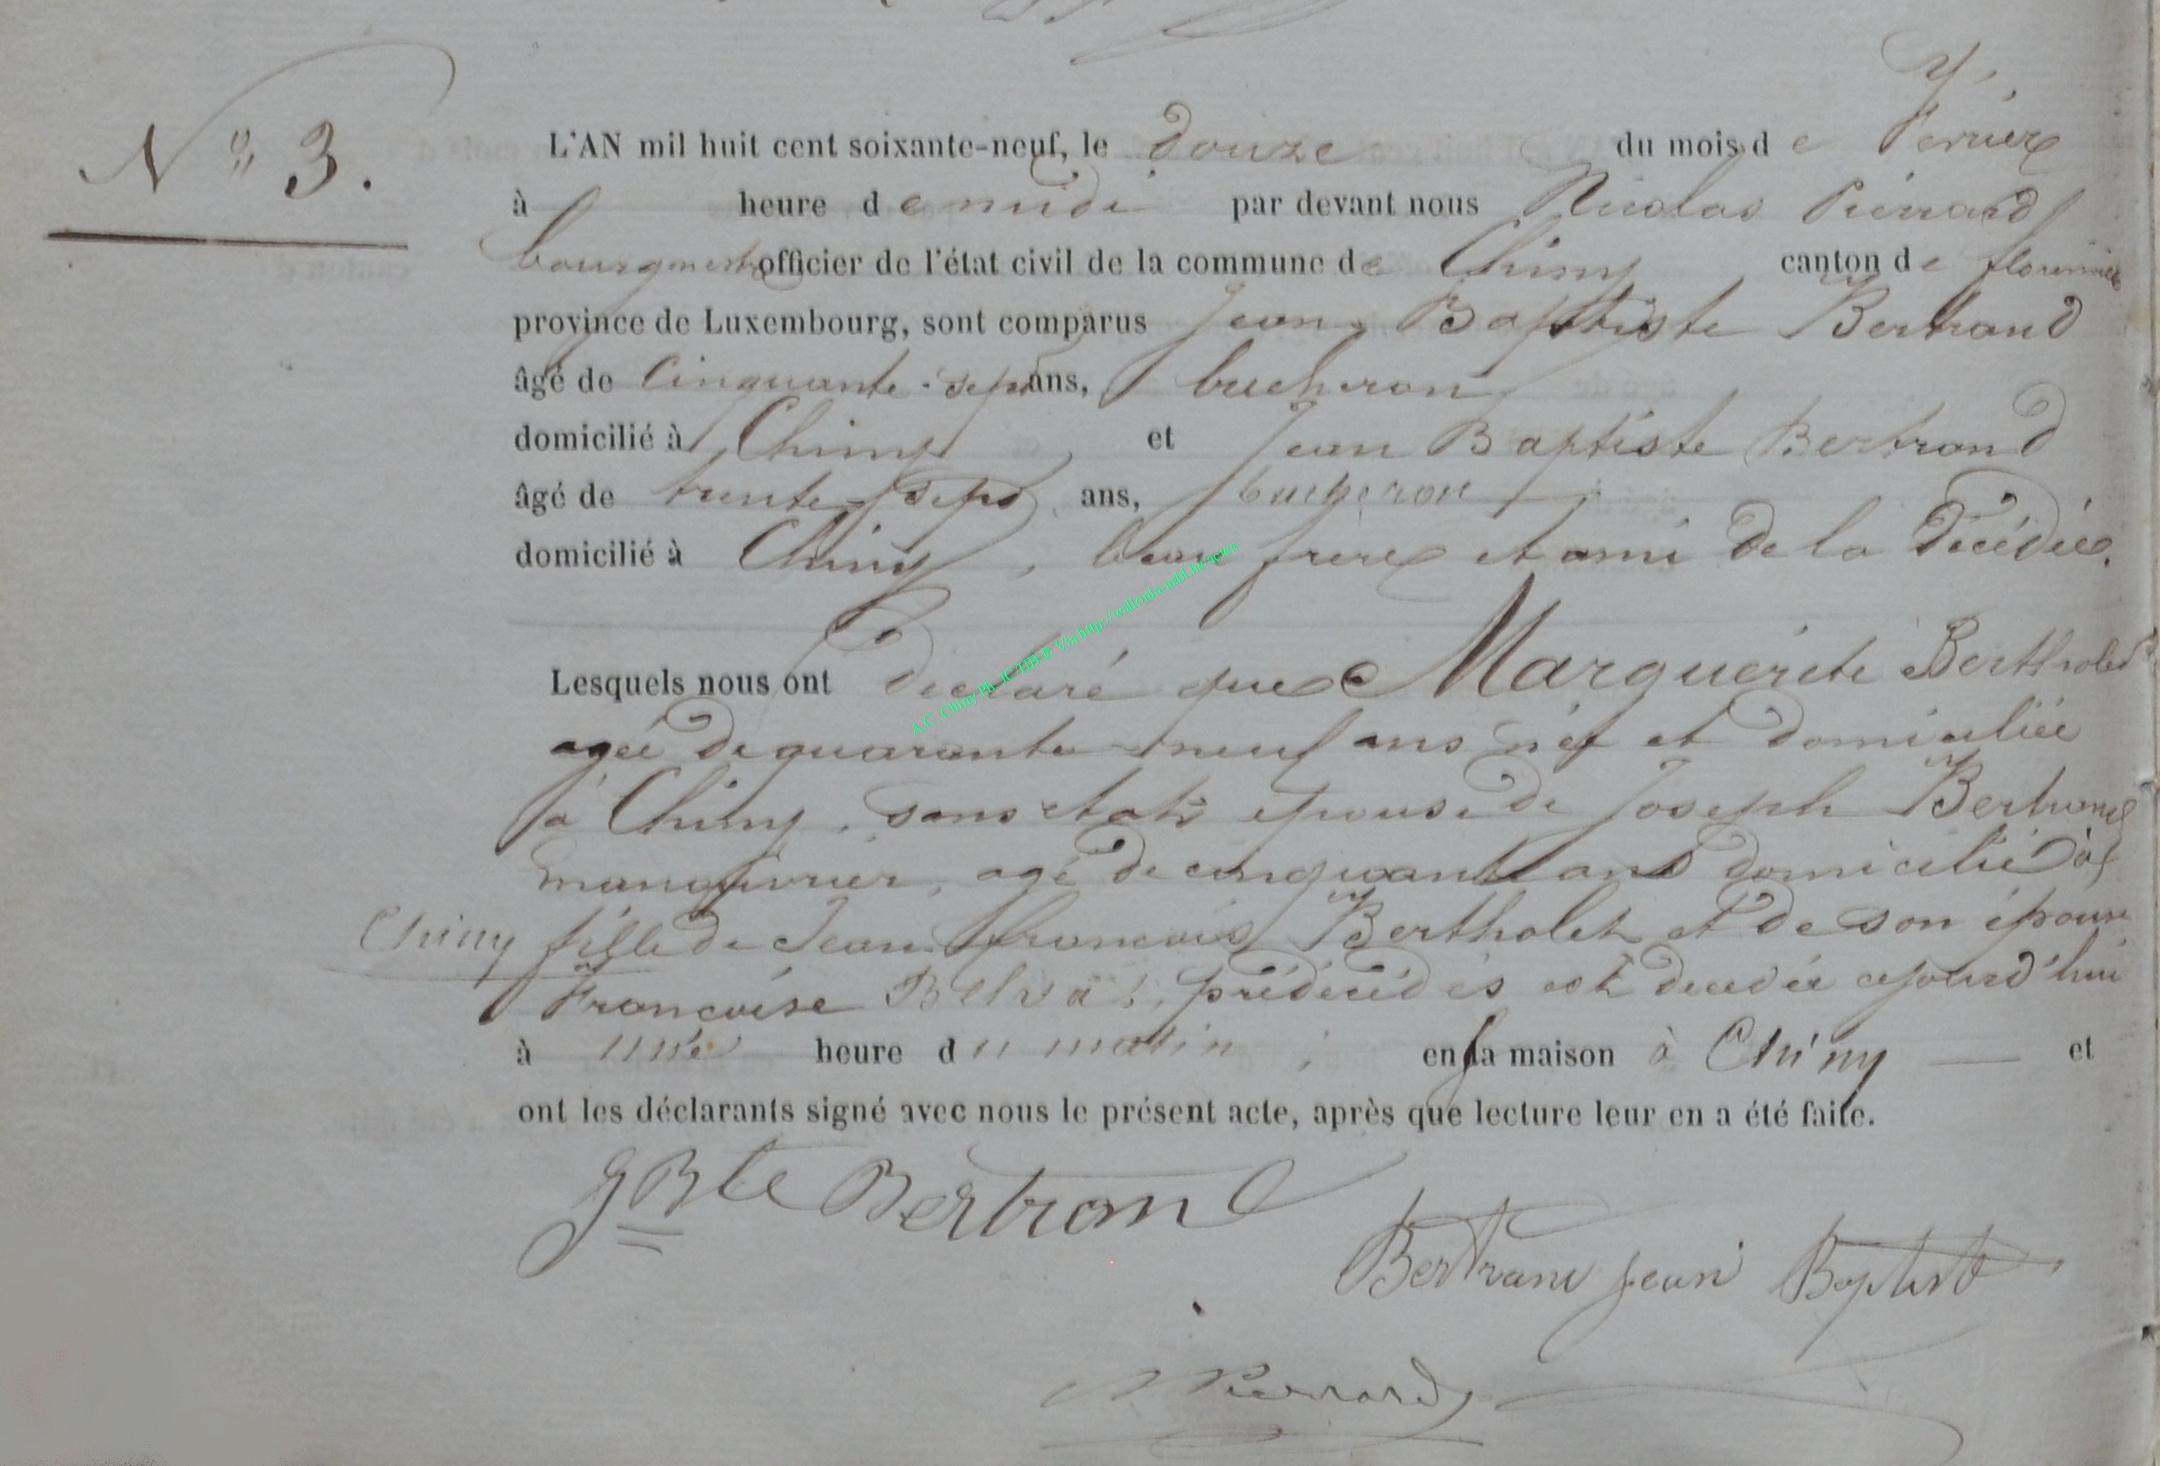 N° 3.
L'AN mil huit cent soixante-neuf, le douze du mois de Fevrier
à heure de midi par devant nous Nicolas Pierrard
bourgmestre officier de l'état civil de la commune de Chiny canton de florenville
province de Luxembourg, sont comparus Jean Baptiste Bertrand
âgé de Cinquante-sept ans, bucheron
domicilié à Chiny et Jean Baptiste Bertrand
âgé de trente sept ans, bucheron
domicilié à Chiny, beau frere et ami de la Décédée.
Lesquels nous ont declaré que Marguerite Bertholet
agée de quarante neuf ans née et domiciliée
à Chiny, sans etat épouse de Joseph Bertrand
manouvrier, agé de cinquante ans domicilié à
Chiny fille de Jean francois Bertholet et de son épouse
Francoise prédécédés est decedée cejourd'hui
à une heure du matin, en sa maison à Chiny et
ont les déclarants signé avec nous le présent acte, après que lecture leur en a été faite.
J Bte Bertrand
Bertrand Jean Baptist
N Pierrard
A.C. Chiny via http://wallonia-asbl.be